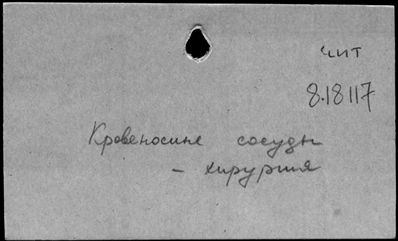 чит
8.18117
Кровеносные сосуды
– хирургия